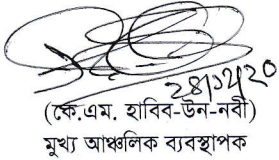 ২৪/১২/২০
(কে.এম. হাবিব-উন-নবী)
মুখ্য আঞ্চলিক ব্যবস্থাপক